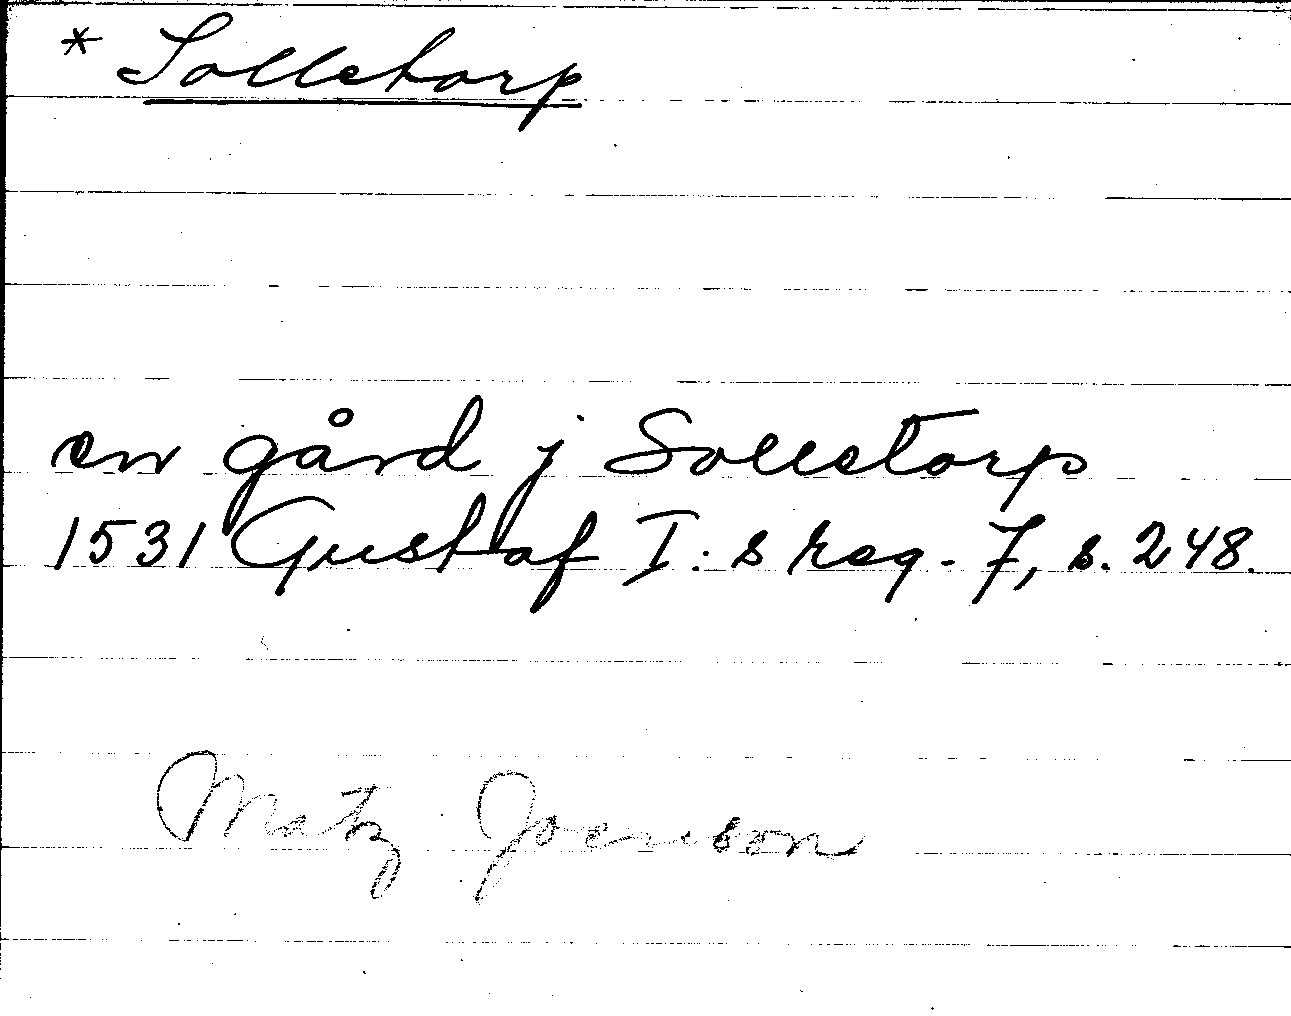 * Solletorp
en gård j Solletorp
1531 Gustaf I:s reg. 7, s. 248.
Matz Joenson